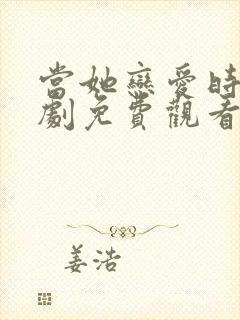 當她戀愛時
劇免費觀看
姜浩